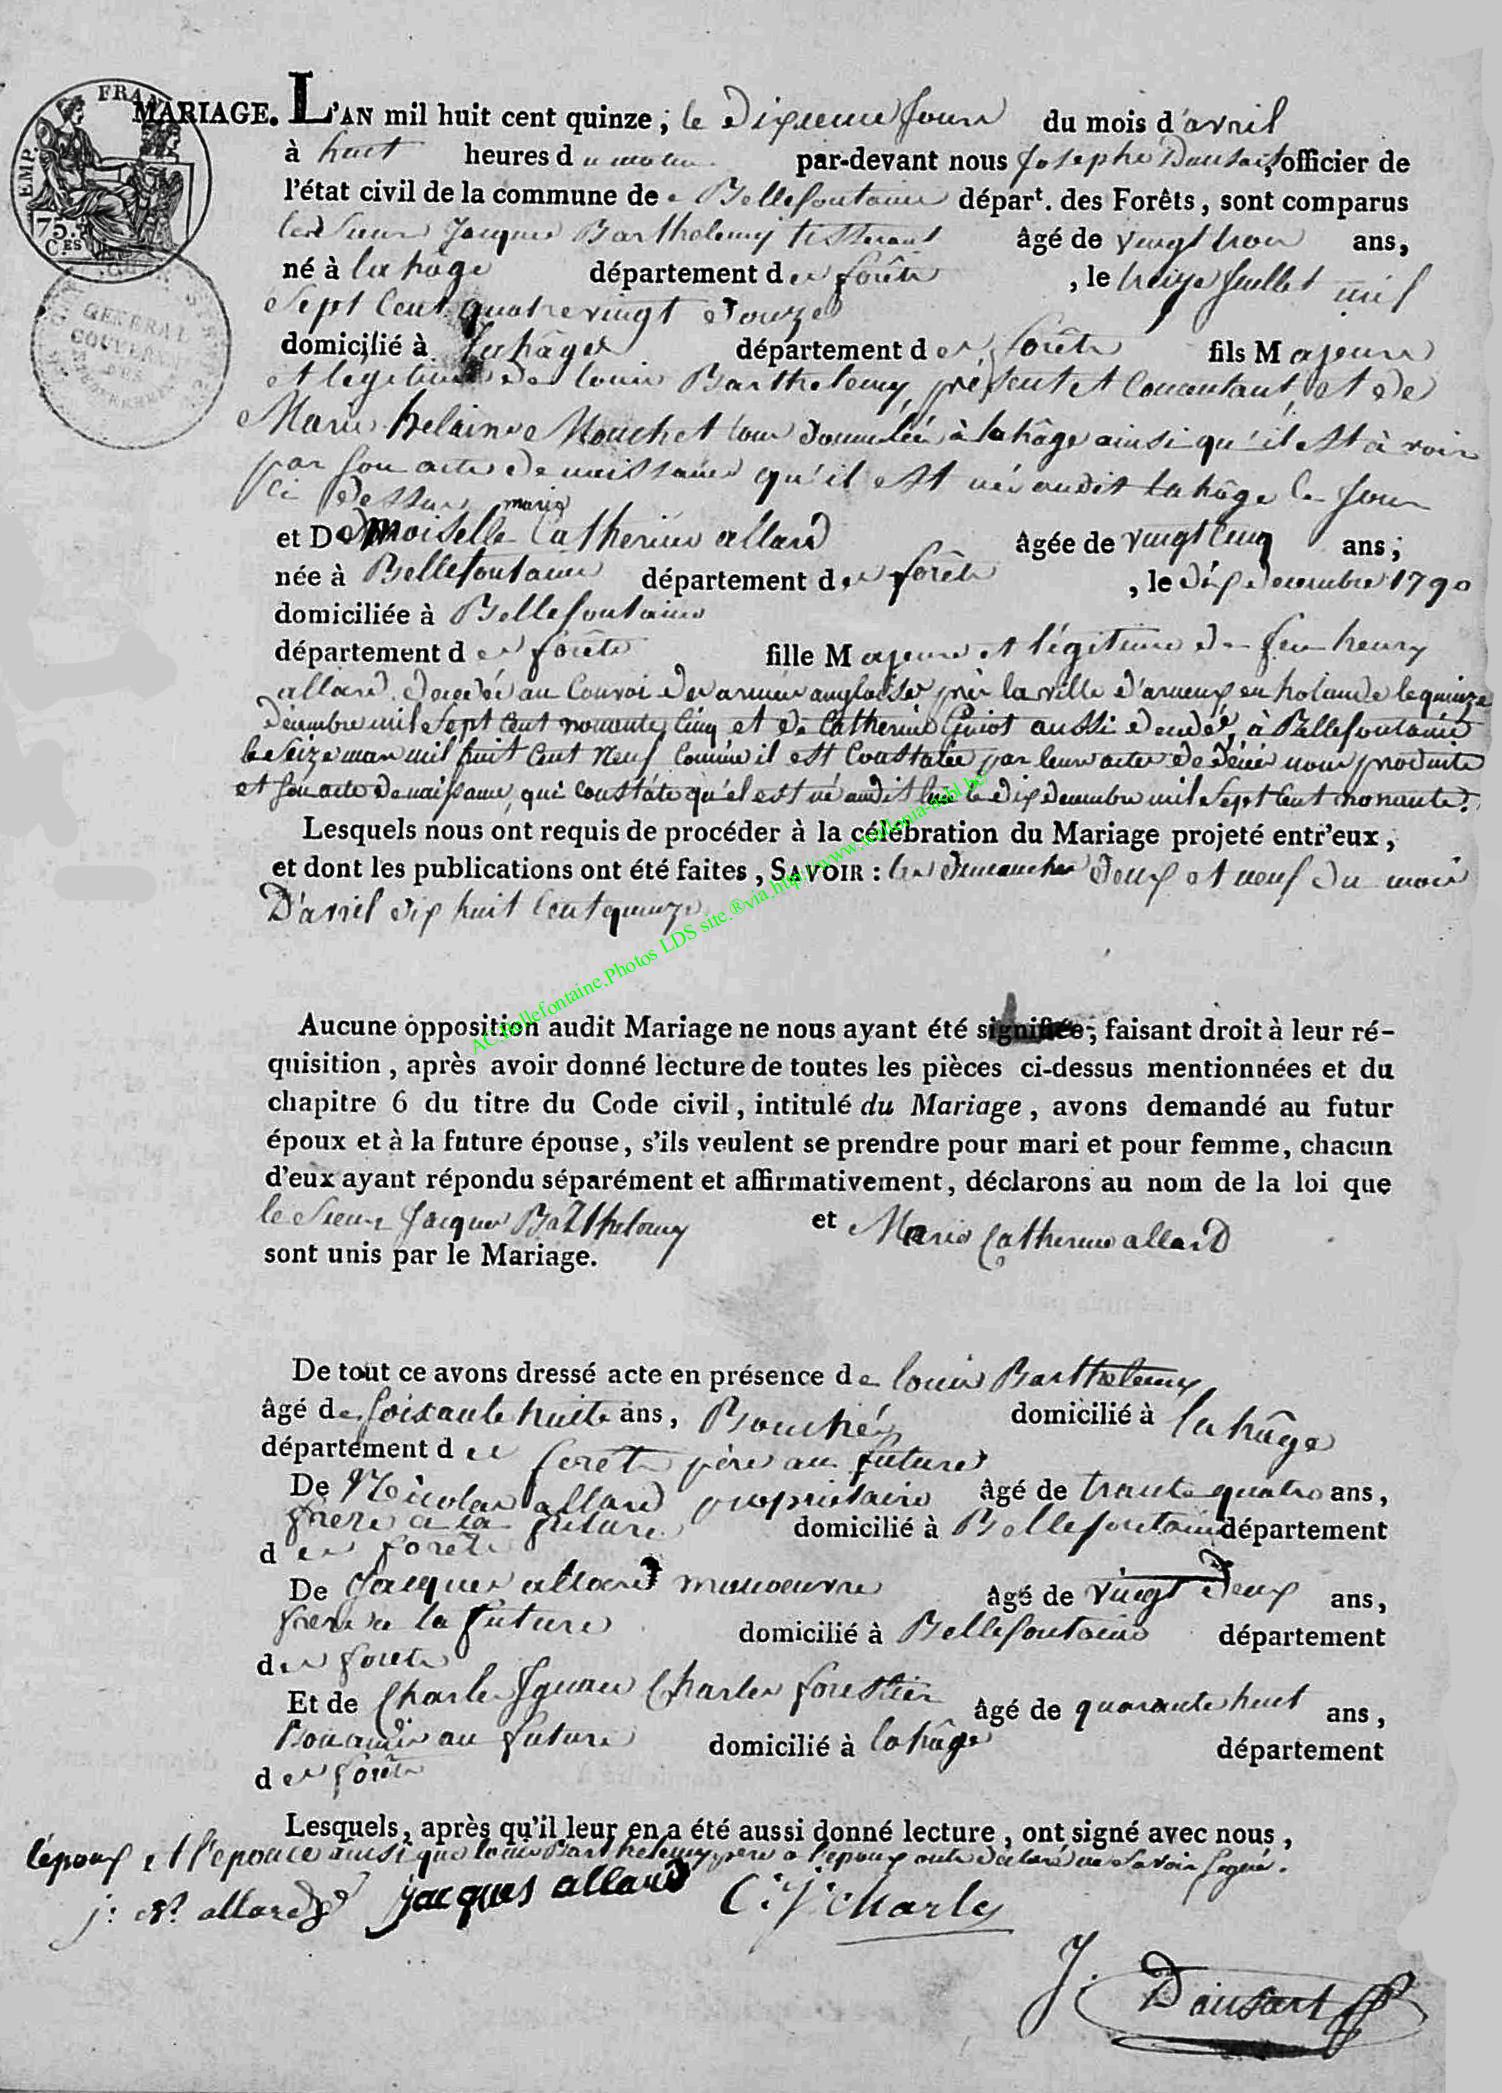 FRAN
EMP.
75.
C.ES
GENERAL
GOUVERN
DES
MARIAGE. L'AN mil huit cent quinze, le Dixieme Jour du mois d'avril
à huit heures du matin par-devant nous Josephe Dausart, officier de
l'état civil de la commune de Bellefontaine départ. des Forêts, sont comparus
Sieur Jacques Barthelemy tisserant âgé de vingt trois ans,
né à lahâge département des forêts, le treize Juillet mil
Sept Cent quatre vingt douze
domicilié à lahâge département des forêts fils Majeure
et légitime de louis Barthelemy, présent et Consentant, et de
Marie helainne Mouchet tous domiciliés à lahâge ainsi qu'il est à voir
par son acte de naissance qu'il est né audit lahâge le Jour
ci dessus
marie
et Demoiselle Catherine allard âgée de vingt cinq ans,
née à Bellefontaine département des forêts, le dix decembre 1790
domiciliée à Bellefontaine
département des forêts fille Majeure et légitime de feu henry
allard, decedé au Convoi des armées angloise près la ville d' en holande le quinze
décembre mil Sept Cent nonante Cinq et de Catherine Guiot aussi decedé, à Bellefontaine
le Seize mars mil huit Cent Neuf Comme il est Constatée par leurs actes de décés nous produits
et son acte de naissance, qui constate qu'el est né audit lieu le dix decembre mil Sept Cent nonante.
Lesquels nous ont requis de procéder à la célébration du Mariage projeté entr'eux,
et dont les publications ont été faites, SAVOIR : les dimanches deux et neuf du mois
D'avril dix huit Cent quinze
AC.Bellefontaine.Photos LDS site.®via.http://www.wallonia-asbl.be/
Aucune opposition audit Mariage ne nous ayant été signifiée; faisant droit à leur ré-
quisition, après avoir donné lecture de toutes les pièces ci-dessus mentionnées et du
chapitre 6 du titre du Code civil, intitulé du Mariage, avons demandé au futur
époux et à la future épouse, s'ils veulent se prendre pour mari et pour femme, chacun
d'eux ayant répondu séparément et affirmativement, déclarons au nom de la loi que
le Sieur Jacques Barthelemy et Marie Catherine allard
sont unis par le Mariage.
De tout ce avons dressé acte en présence de louis Barthelemy
âgé de soixante huite ans, domicilié à lahâge
département des forêts père au future
De Nicolas allard propriétaire âgé de trante quatre ans,
frere a la future domicilié à Bellefontaine département
des forêts
De Jacques allard manoeuvre âgé de vingt deux ans,
frere a la future domicilié à Bellefontaine département
des forêts
Et de Charle Ignace Charles forestier âgé de quarante huit ans,
au future domicilié à lahâge département
des forêts
Lesquels, après qu'il leur en a été aussi donné lecture, ont signé avec nous,
l'époux et l'epouce ainsi que louis Barthelemy pere a l'epoux onte declaré ne Savoir Signé.
allard jacques allard C: J: Charles
J. Dausart